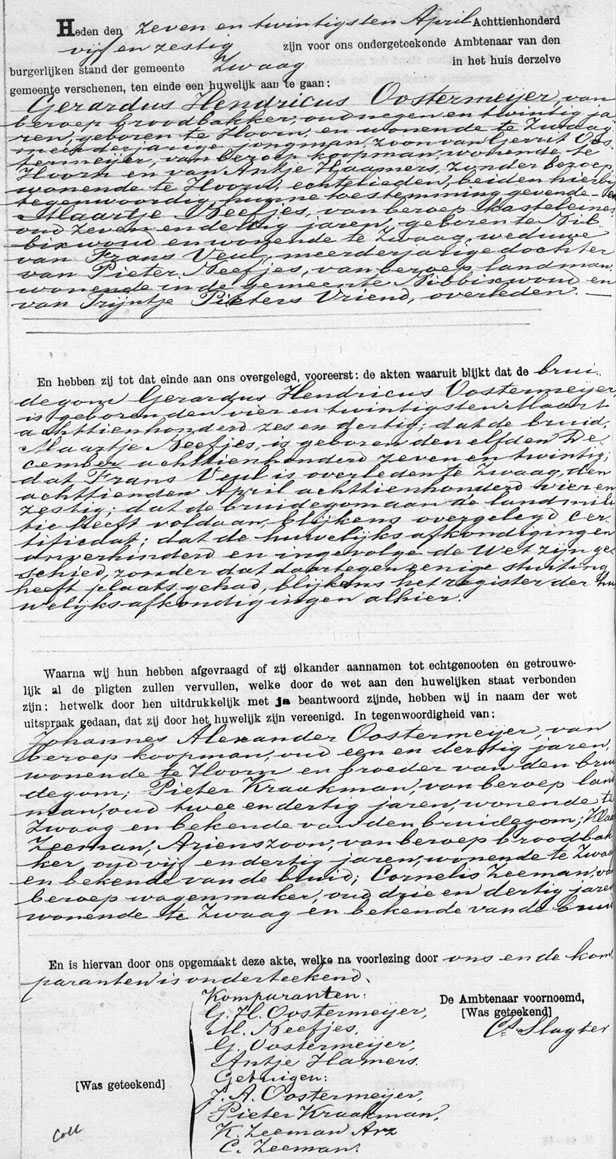 Heden den zeven en twintigsten April Achttienhonderd
vijf en zestig zijn voor ons ondergeteekende Ambtenaar van den
burgerlijken stand der gemeente Zwaag in het huis derzelve
gemeente verschenen, ten einde een huwelijk aan te gaan:
Gerardus Hendricus Oostermeijer, van
beroep broodbakker, oud negen en twintig ja
ren, geboren te Hoorn, en wonende te Zwaag,
meerderjarige jongman, zoon van Gerrit Oos
termeijer, van beroep koopman, wonende te
Hoorn en van Antje Haamers, zonder beroep,
wonende te Hoorn, echtelieden, beiden hierbij
tegenwoordig, hunne toestemming gevende. En
Maartje Neefjes, van beroep kasteleinse
oud zeven en dertig jaren, geboren te Nib
bixwoud en wonende te Zwaag, weduwe
van Frans Veul, meerderjarige dochter
van Pieter Neefjes, van beroep landman
wonende in de gemeente Nibbixwoud en
van Trijntje Pieters Vriend, overleden.
En hebben zij tot dat einde aan ons overgelegd, vooreerst: de akten waaruit blijkt dat de brui
degom Gerardus Hendricus Oostermeijer
is geboren den vier en twintigsten Maart
achttienhonderd zes en dertig; dat de bruid,
Maartje Neefjes, is geboren den elfden De
cember achttienhonderd zeven en twintig;
dat Frans Veul is overleden te Zwaag, den
achttienden April achttienhonderd vier en
zestig; dat de bruidegom aan de landsmili
tie heeft voldaan, blijkens overgelegd cer
tificaat; dat de huwelijksafkondigingen
onverhinderd en ingevolge de Wet zijn ge
schied, zonder dat daartegen eenige stuiting
heeft plaats gehad, blijkens het register der hu
welijksafkondigingen alhier.
Waarna wij hun hebben afgevraagd of zij elkander aannamen tot echtgenooten én getrouwe-
lijk al de pligten zullen vervullen, welke door de wet aan den huwelijken staat verbonden
zijn: hetwelk door hen uitdrukkelijk met ja beantwoord zijnde, hebben wij in naam der wet
uitspraak gedaan, dat zij door het huwelijk zijn vereenigd. In tegenwoordigheid van:
Johannes Alexander Oostermeijer, van
beroep koopman, oud een en dertig jaren,
wonende te Hoorn en broeder van den brui
degom; Pieter Kraakman, van beroep land
man, oud twee en dertig jaren, wonende te
Zwaag en bekende van den bruidegom; Klaas
Zeeman, Arienszoon, van beroep broodbak
ker, oud vijf en dertig jaren, wonende te Zwaag
en bekende van de bruid; Cornelis Zeeman, van
beroep wagenmaker, oud drie en dertig jaren
wonende te Zwaag en bekende van de bruid
En is hiervan door ons opgemaakt deze akte, welke na voorlezing door ons en de kom
paranten is onderteekend.
Komparanten:
G. H. Oostermeijer,
M. Neefjes,
G. Oostermeijer,
Antje Hamers.
Getuigen:
J. A. Oostermeijer,
Pieter Kraakman,
K. Zeeman Arz
C. Zeeman.
[Was geteekend]
De Ambtenaar voornoemd,
[Was geteekend]
Slagter
Coll